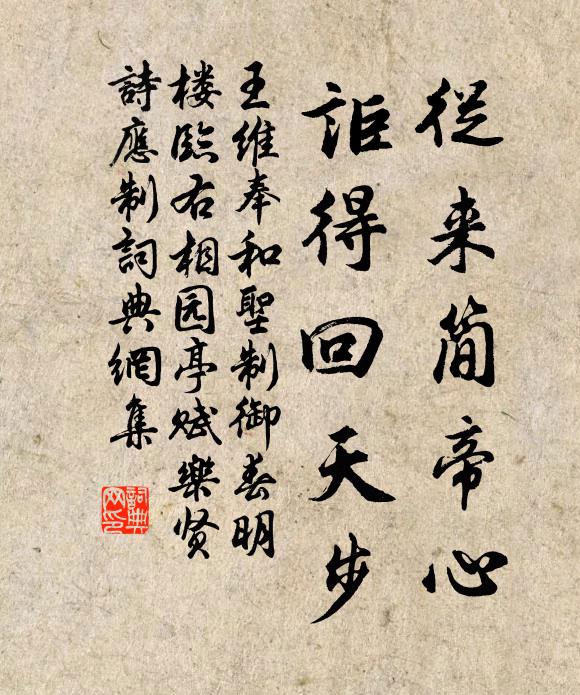 從来简帝心
詎得回天步
王維奉和聖制御春明
楼臨右相园亭赋樂贤
詩應制詞典網集
詞典
网印